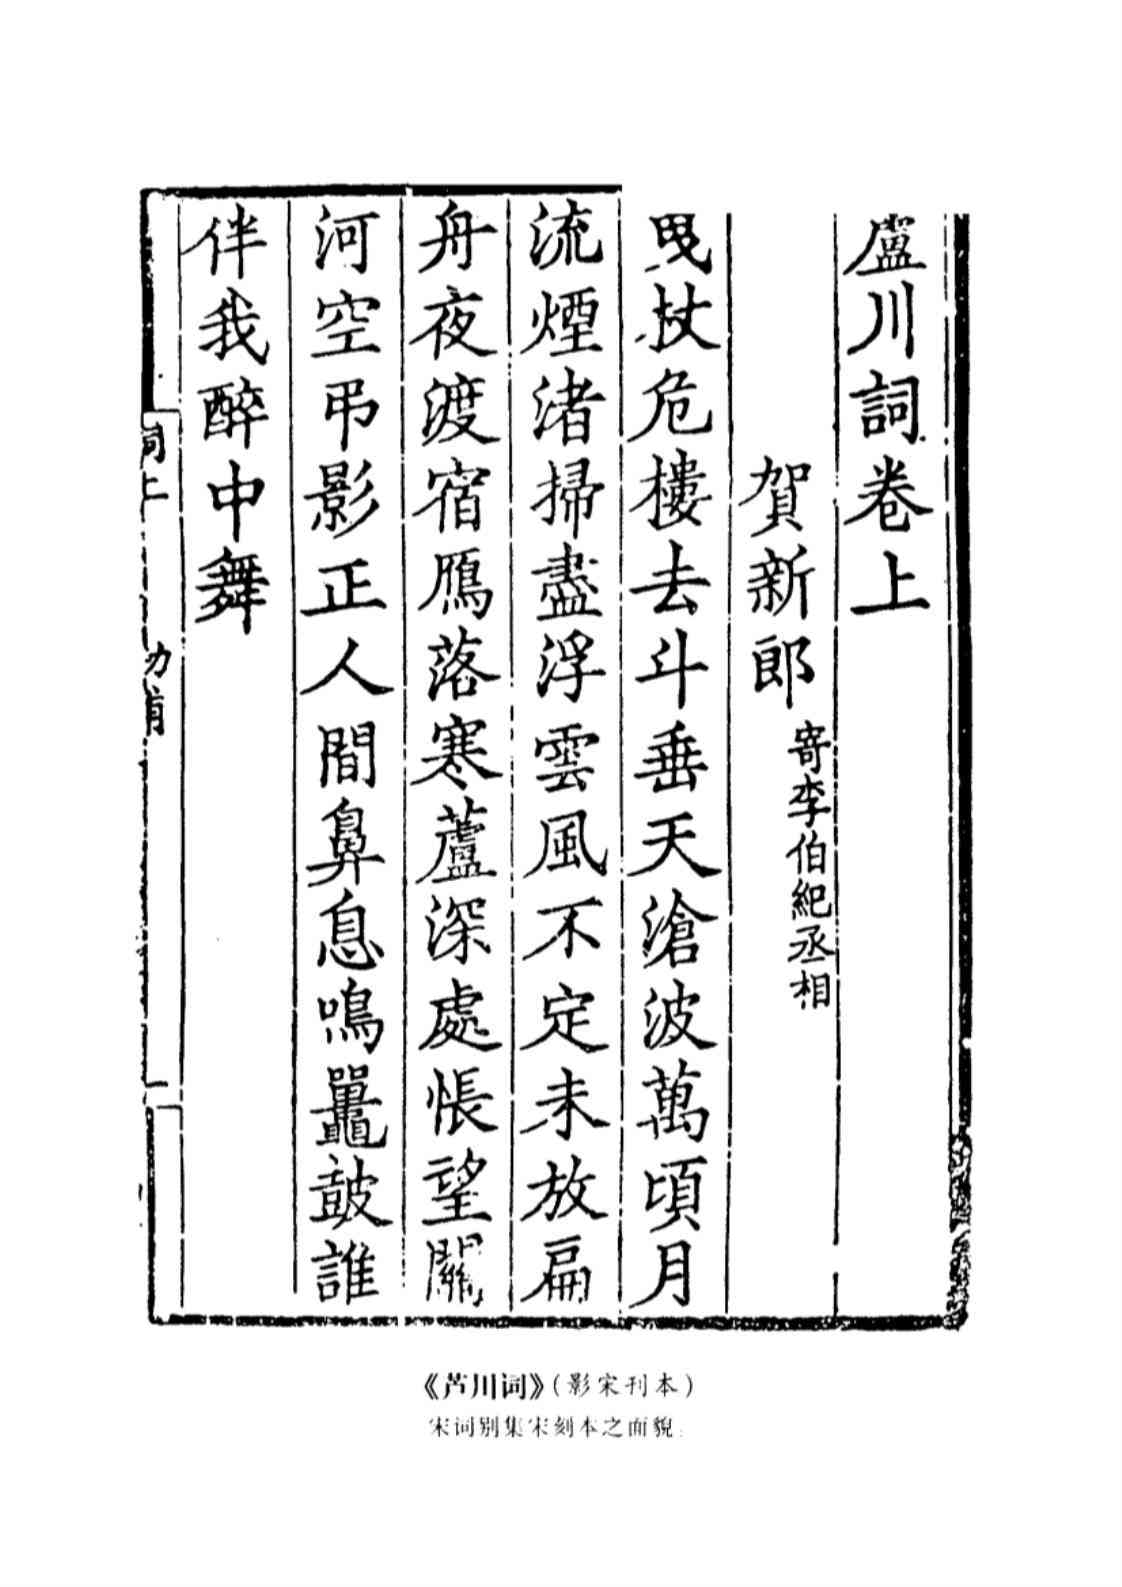 蘆川詞卷上
賀新郎 寄李伯紀丞相
曳杖危樓去斗垂天滄波萬頃月
流煙渚掃盡浮雲風不定未放扁
舟夜渡宿鴈落寒蘆深處悵望關
河空弔影正人間鼻息鳴鼉鼓誰
伴我醉中舞
詞上
《芦川词》(影宋刊本)
宋词别集宋刻本之面貌。